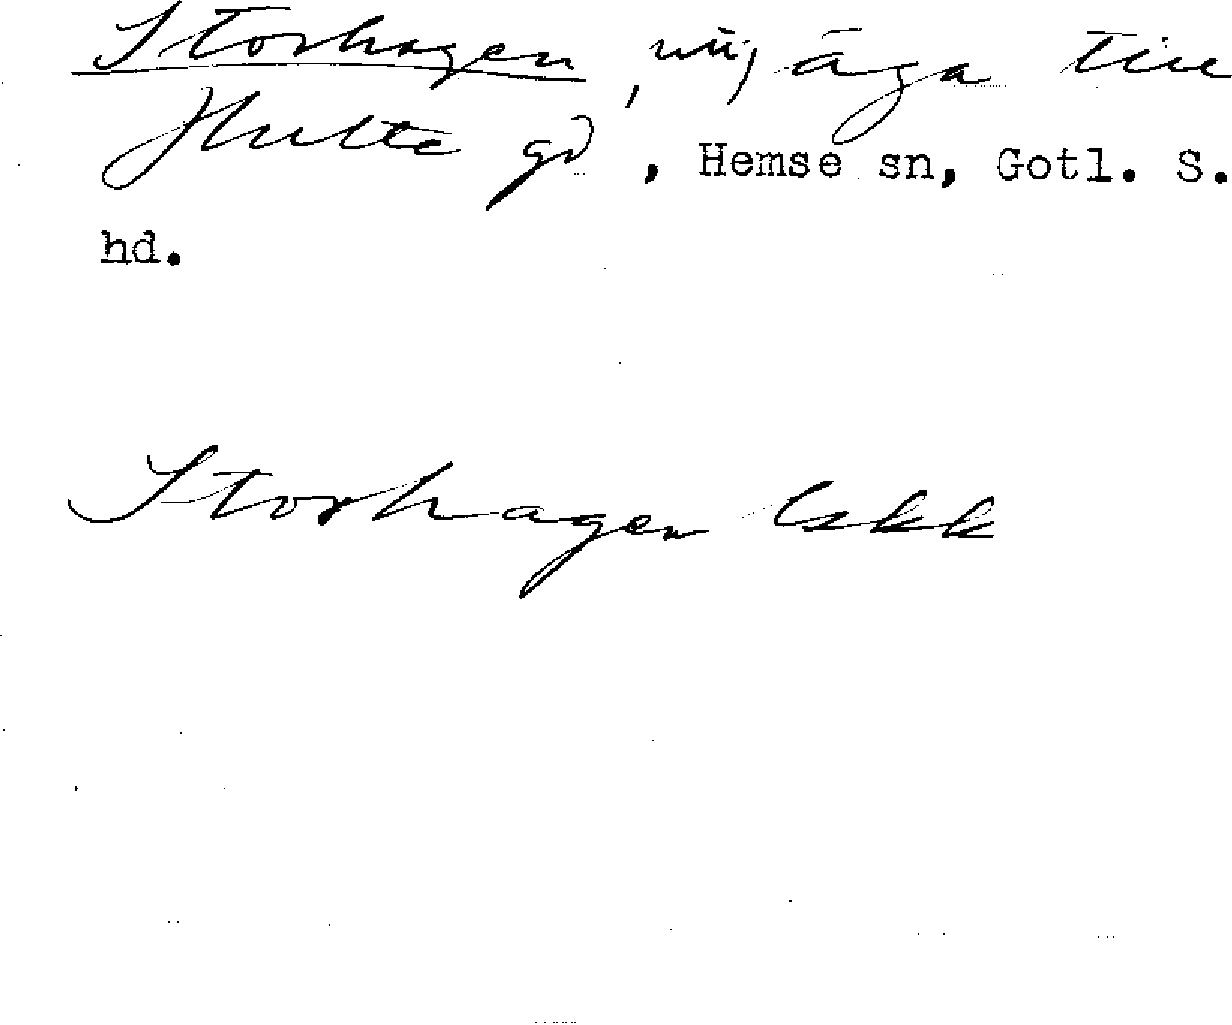 Storhagen, utäga till
Hulte gd, Hemse sn, Gotl. S.
hd.
Storhagen Eskk